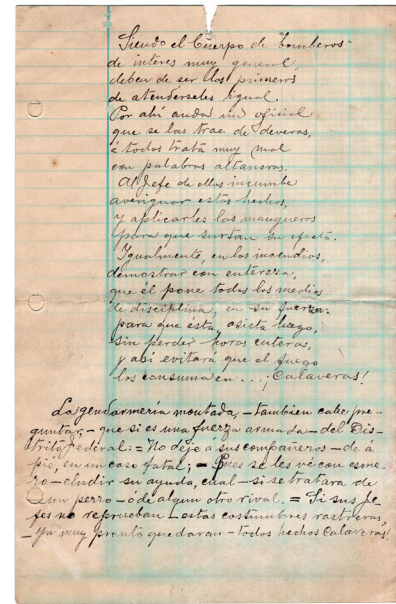 Siendo el Cuerpo de bomberos
de interes muy general,
deben de ser los primeros
de atenderseles igual.
Por ahi anda un oficial
que se las trae de deveras,
á todos trata muy mal
con palabras altaneras.
Al Jefe de ellos incumbe
averiguar estos hechos,
y aplicarles los mangueros
para que surtan su efecto.
Igualmente, en los incendios,
demostrar con entereza,
que él pone todos los medios
de disciplina, en su fuerza.
para que ésta, asista luego,
sin perder horas enteras,
y asi evitará que el fuego
los consuma en... ¡Calaveras!
La gendarmería montada, – tambien cabe pre-
guntar, – que si es una fuerza armada – del Dis-
trito Federal: = No deje á sus compañeros – de á
pié, en un caso fatal; = Pues se les vé con esme-
ro – eludir su ayuda, cual – si se tratara de
un perro – ó de algun otro rival. = Si sus Je-
fes no reprueban – estas costumbres rastreras,
– Ya muy pronto quedaran – todos hechos Calaveras!